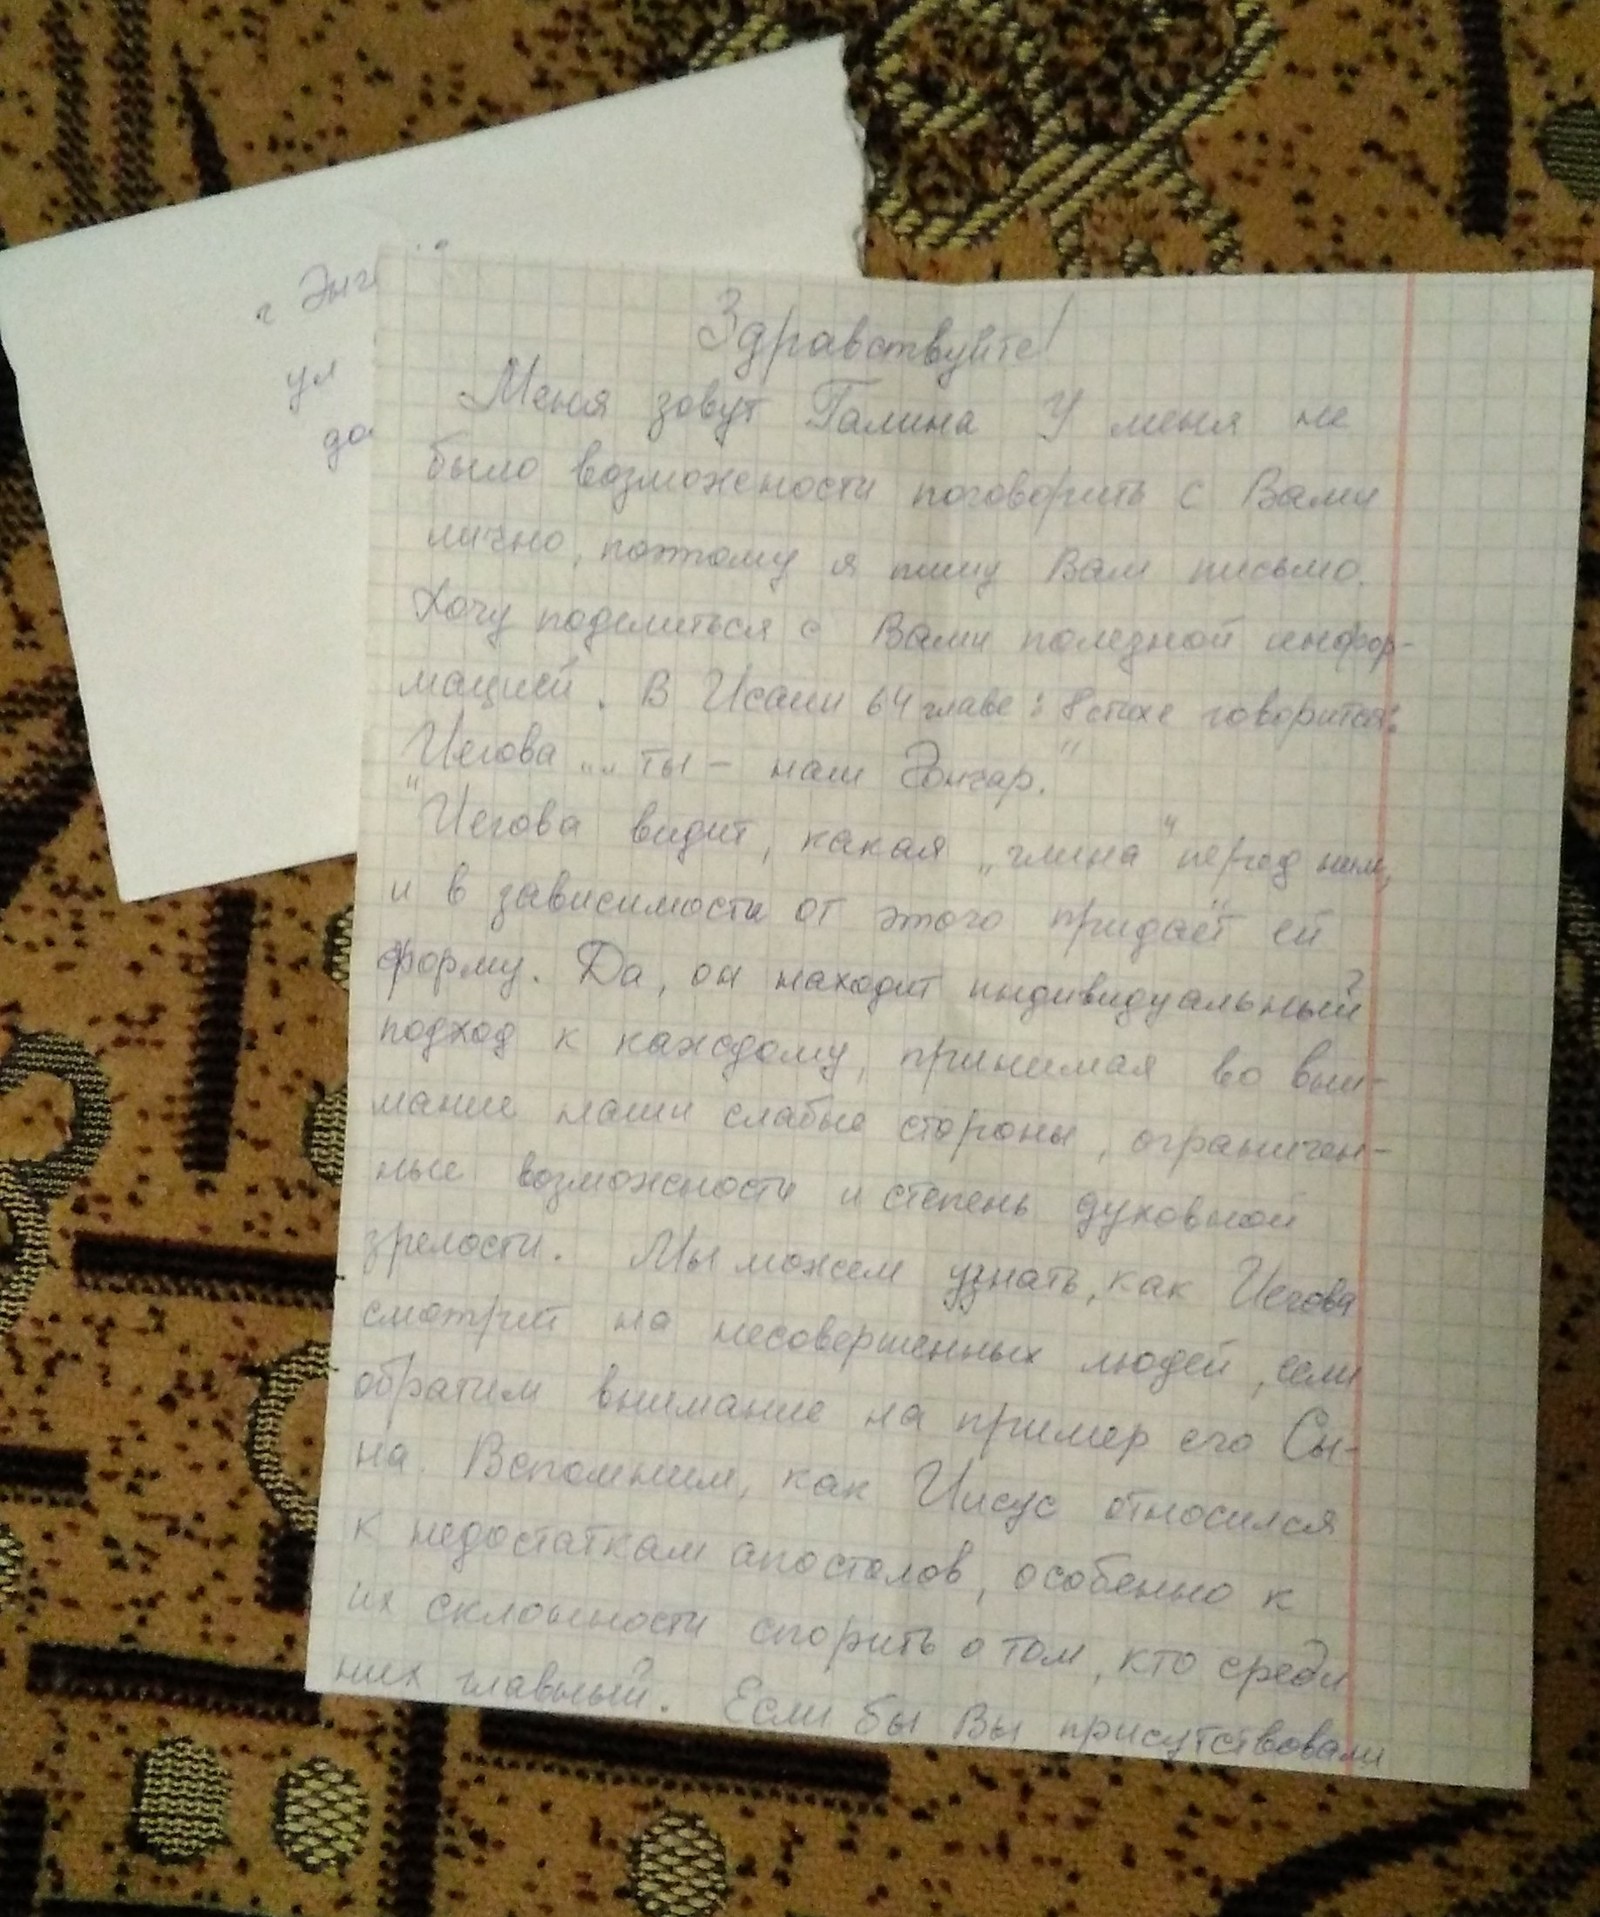 г Энг
ул
до
Здравствуйте!
Меня зовут Галина У меня не
было возможности поговорить с Вами
лично, поэтому я пишу Вам письмо.
Хочу поделиться с Вами полезной инфор-
мацией. В Исаии 64 главе : 8 стихе говорится:
Иегова „„ ты – наш Гончар."
"Иегова видит, какая „глина" перед ним,
и в зависимости от этого придаёт ей
форму. Да, он находит индивидуальный
подход к каждому, принимая во вни-
мание наши слабые стороны, ограничен-
ные возможности и степень духовной
зрелости. Мы можем узнать, как Иегова
смотрит на несовершенных людей, если
обратим внимание на пример его Сы-
на. Вспомним, как Иисус относился
к недостаткам апостолов, особенно к
их склонности спорить о том, кто среди
них главный. Если бы Вы присутствовали